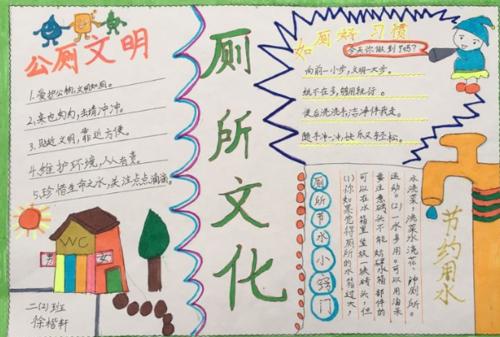 公厕文明
1.爱护公物,文明如厕。
2.来也匆匆,去请冲冲。
3.贴近文明,靠近方便。
4.维护环境,人人有责。
5.珍惜生命之水,关注点点滴滴。
WC
男
女
二(2)班
徐楷轩
厕所文化
如厕好习惯
今天你做到了吗?
向前一小步,文明一大步。
纸不在多,够用就行。
便后洗洗手,洁净伴我走。
随手冲一冲,快乐又轻松。
厕所节水小窍门
(1)你如果觉得厕所的水箱过大,
可以在水箱里竖放一块砖头,但
要注意砖头不能妨碍水箱部件的
运动。(2)一水多用。可以用淘米
水洗菜,洗菜水浇花、冲厕所。
节约用水